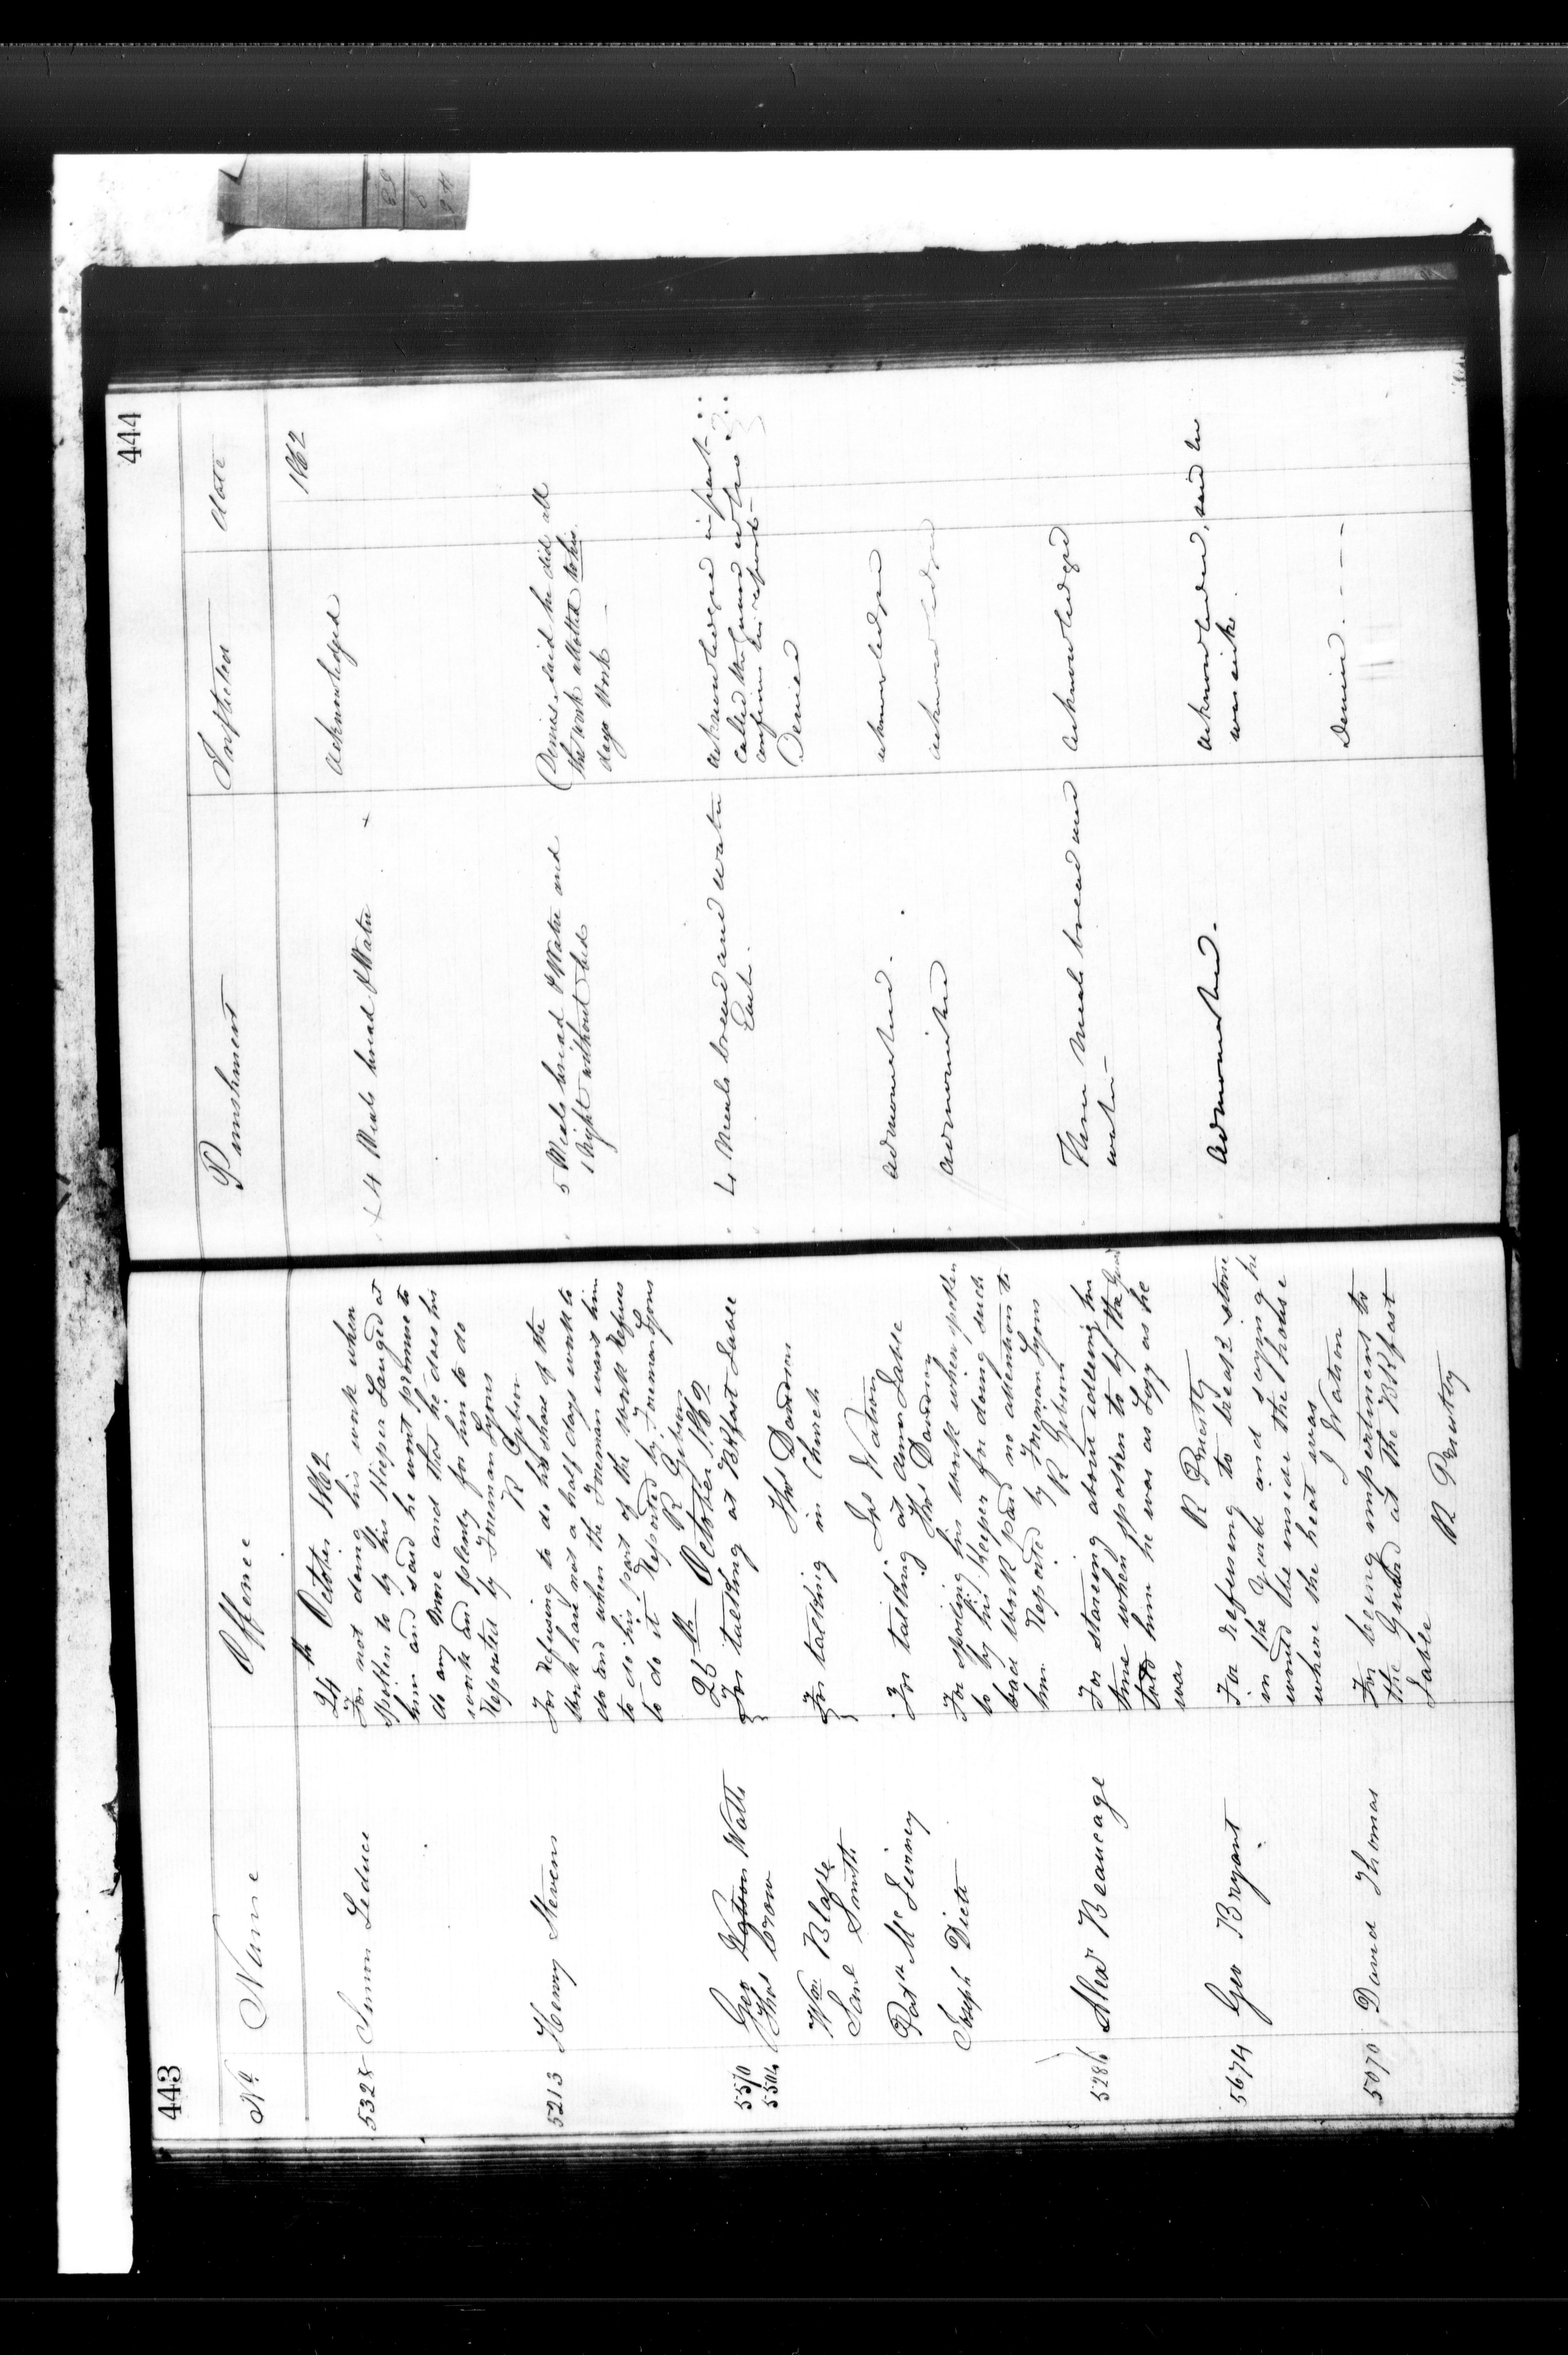 443
No Name Offence
24th October 1862
5328 Simon Leduce For not doing his work when
spoken to by his Keeper Lauged at
him and said he wont promise to
do any more and that he does his
work and plenty for him to do
Reported by Foreman Lyons
R Gibson
5213 Henry Stevens For refusing to do his share of the
work have not a half days work to
do and when the Foreman want him
to do his part of the work Refuses
to do it Reported by Foreman Lyons
R Gibson
25th October 1862
5570 Geo Watson Watts For talking at BKfast Table
5504 Thos Crow
Thos Davidson
Wm Blake For talking in Church
Saml Smith
Jas Watson
Patk McSwiney For talking at dinner Table
Thos Davidson
Joseph Diett For spoiling his work when spoken
to by his keeper for doing such
bad work paid no attention to
him Reported by Foreman Lyons
R Gibson
5286 Alexr Beaucage For stareing about idleing his
time when spoken to by the Guard
told him he was as Lazy as he
was
R Prusty
5674 Geo Bryant For refusing to break stone
in the yard and saying he
would be inside the house
where the heat was
J Watson
5070 David Thomas For being impertinent to
the Guard at the BKfast
Table
R Prusty
444
Punishment Inflicted Date
1862
4 Meals bread & Water Acknowledged
5 Meals bread & Water and Denies, said he did all
1 Night without bed the work allotted to him
days Work
4 Meals bread and water acknowledged in part
Each. called the guard
confirm his report
Denied
admonished. acknowledged
admonished acknowledged
Three Meals bread and acknowledged
water
admonished. acknowledged, said he
was sick
Denied